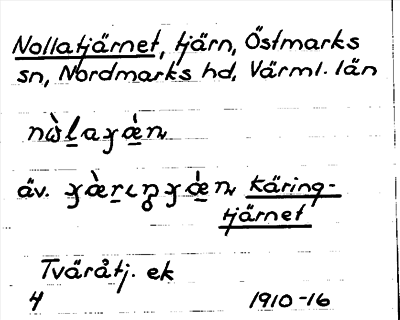 Nollatjärnet, tjärn, Östmarks
sn, Nordmarks hd, Värml. län
äv. Käring-
tjärnet
Tväråtj. ek
4 1910-16